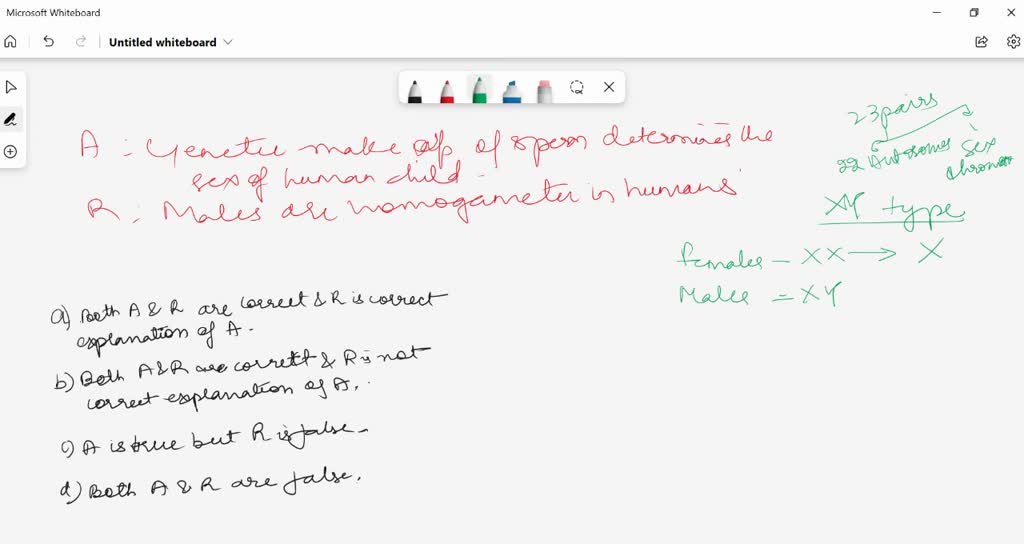 Microsoft Whiteboard
Untitled whiteboard
A : Genetic make up of sperm determines the
sex of human child.
R : Males are homogametic in humans
23 pairs
22 Autosomes sex
chromo
XY type
females - XX → X
Males = XY
a) Both A & R are correct & R is correct
explanation of A.
b) Both A & R are correct & R is not
correct explanation of A.
c) A is true but R is false.
d) Both A & R are false.